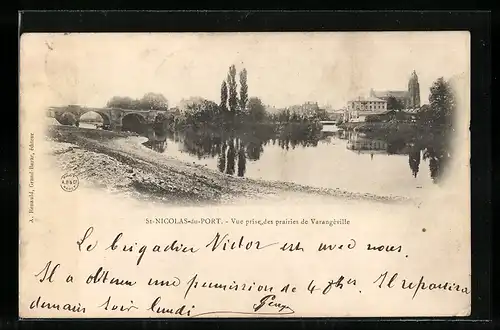 St-NICOLAS-du-PORT. - Vue prise des prairies de Varangéville
Le brigadier Victor est avec nous.
Il a obtenu une permission de 4 hres. Il repartira
demain soir lundi
A. Renauld, Grand-Bazar, éditeur